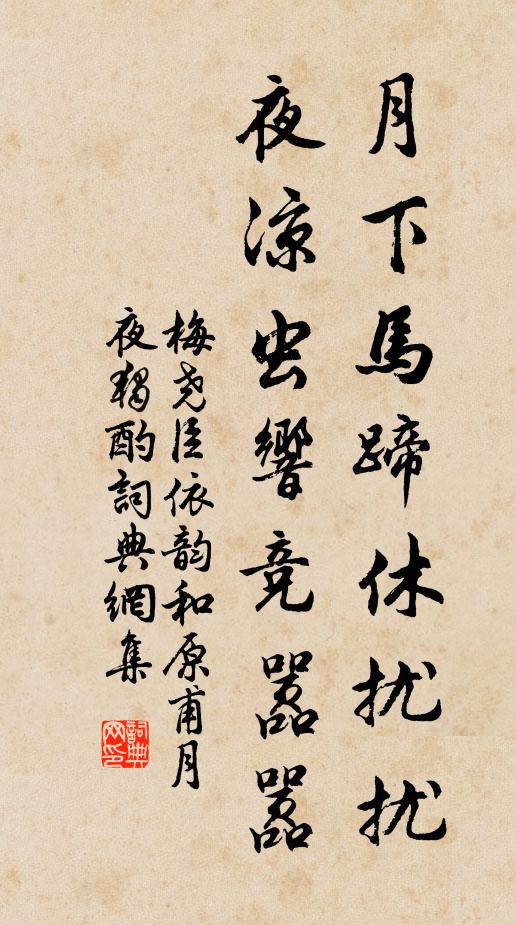 月下馬蹄休扰扰
夜涼虫響竞嚣嚣
梅尧臣依韵和原甫月
夜獨酌詞典網集
詞典
网印